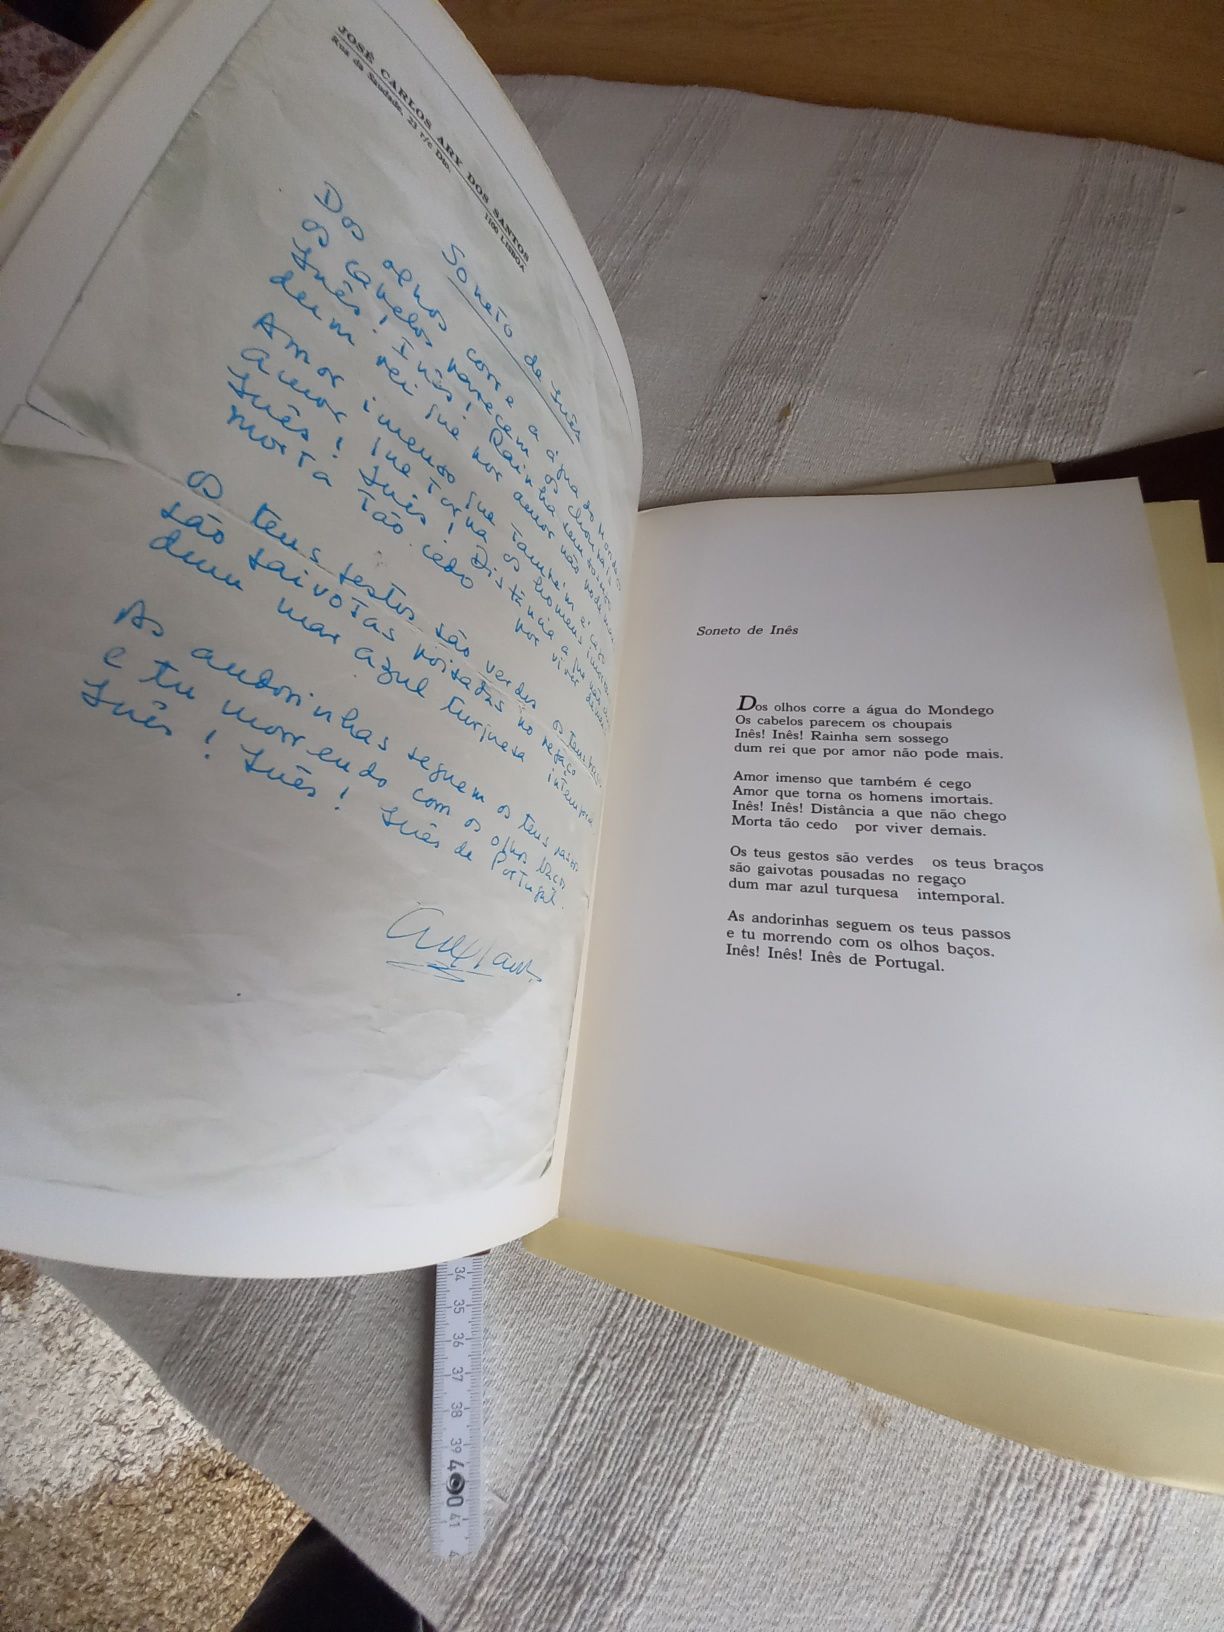 JOSÉ CARLOS ARY DOS SANTOS
Rua da Saudade, 23 r/c Dto. 1100 LISBOA
Soneto de Inês
Dos olhos corre a água do Mondego
os cabelos parecem os choupais
Inês! Inês! Rainha sem sossego
dum rei que por amor não pode mais
Amor imenso que também é cego
amor que torna os homens imortais
Inês! Inês! Distância a que não chego
morta tão cedo por viver demais
Os teus gestos são verdes os teus braços
são gaivotas poisadas no regaço
dum mar azul turquesa intemporal
As andorinhas seguem os teus passos
e tu morrendo com os olhos baços
Inês! Inês! Inês de Portugal.
Soneto de Inês
Dos olhos corre a água do Mondego
Os cabelos parecem os choupais
Inês! Inês! Rainha sem sossego
dum rei que por amor não pode mais.
Amor imenso que também é cego
Amor que torna os homens imortais.
Inês! Inês! Distância a que não chego
Morta tão cedo por viver demais.
Os teus gestos são verdes os teus braços
são gaivotas pousadas no regaço
dum mar azul turquesa intemporal.
As andorinhas seguem os teus passos
e tu morrendo com os olhos baços.
Inês! Inês! Inês de Portugal.
34
35
36
37
38
39
40
41